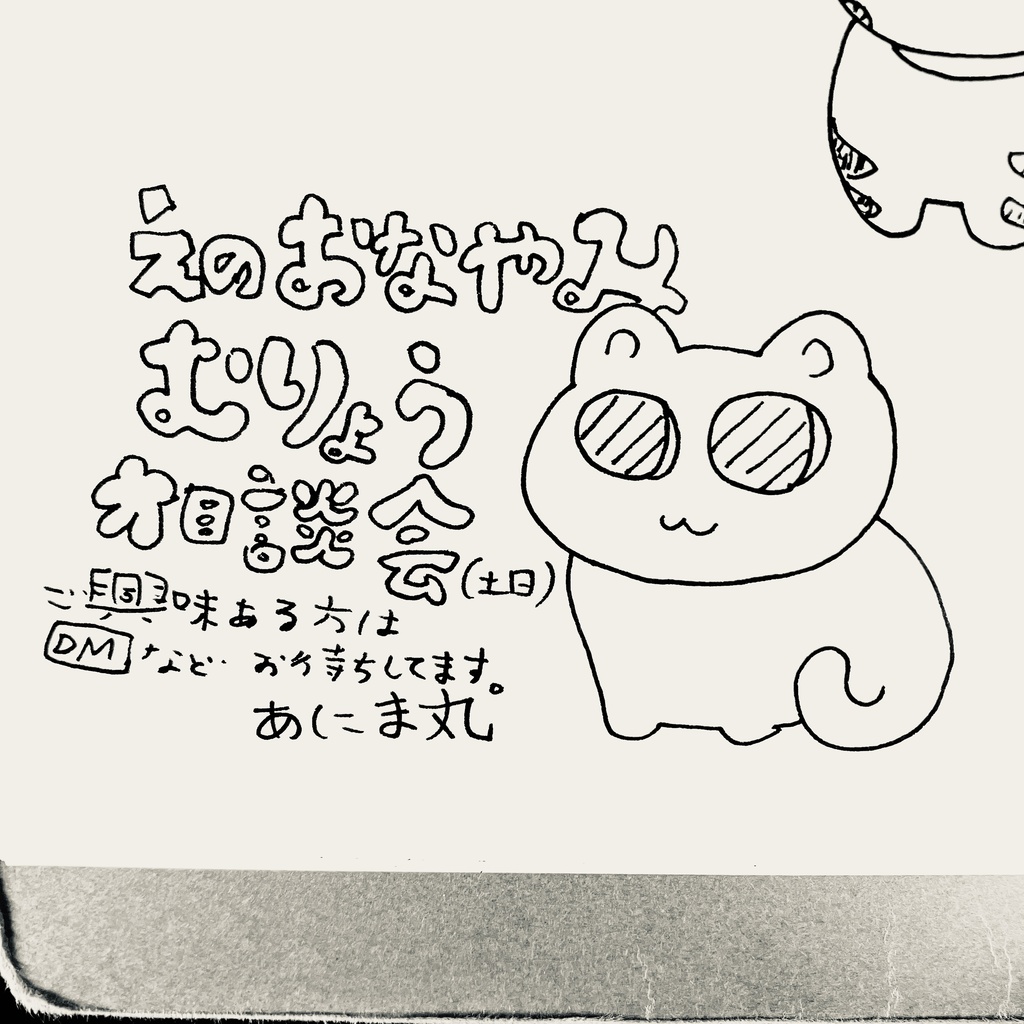 えのおなやみ
むりょう
相談会(土日)
ご興味ある方は
DMなど お待ちしてます。
あにま丸